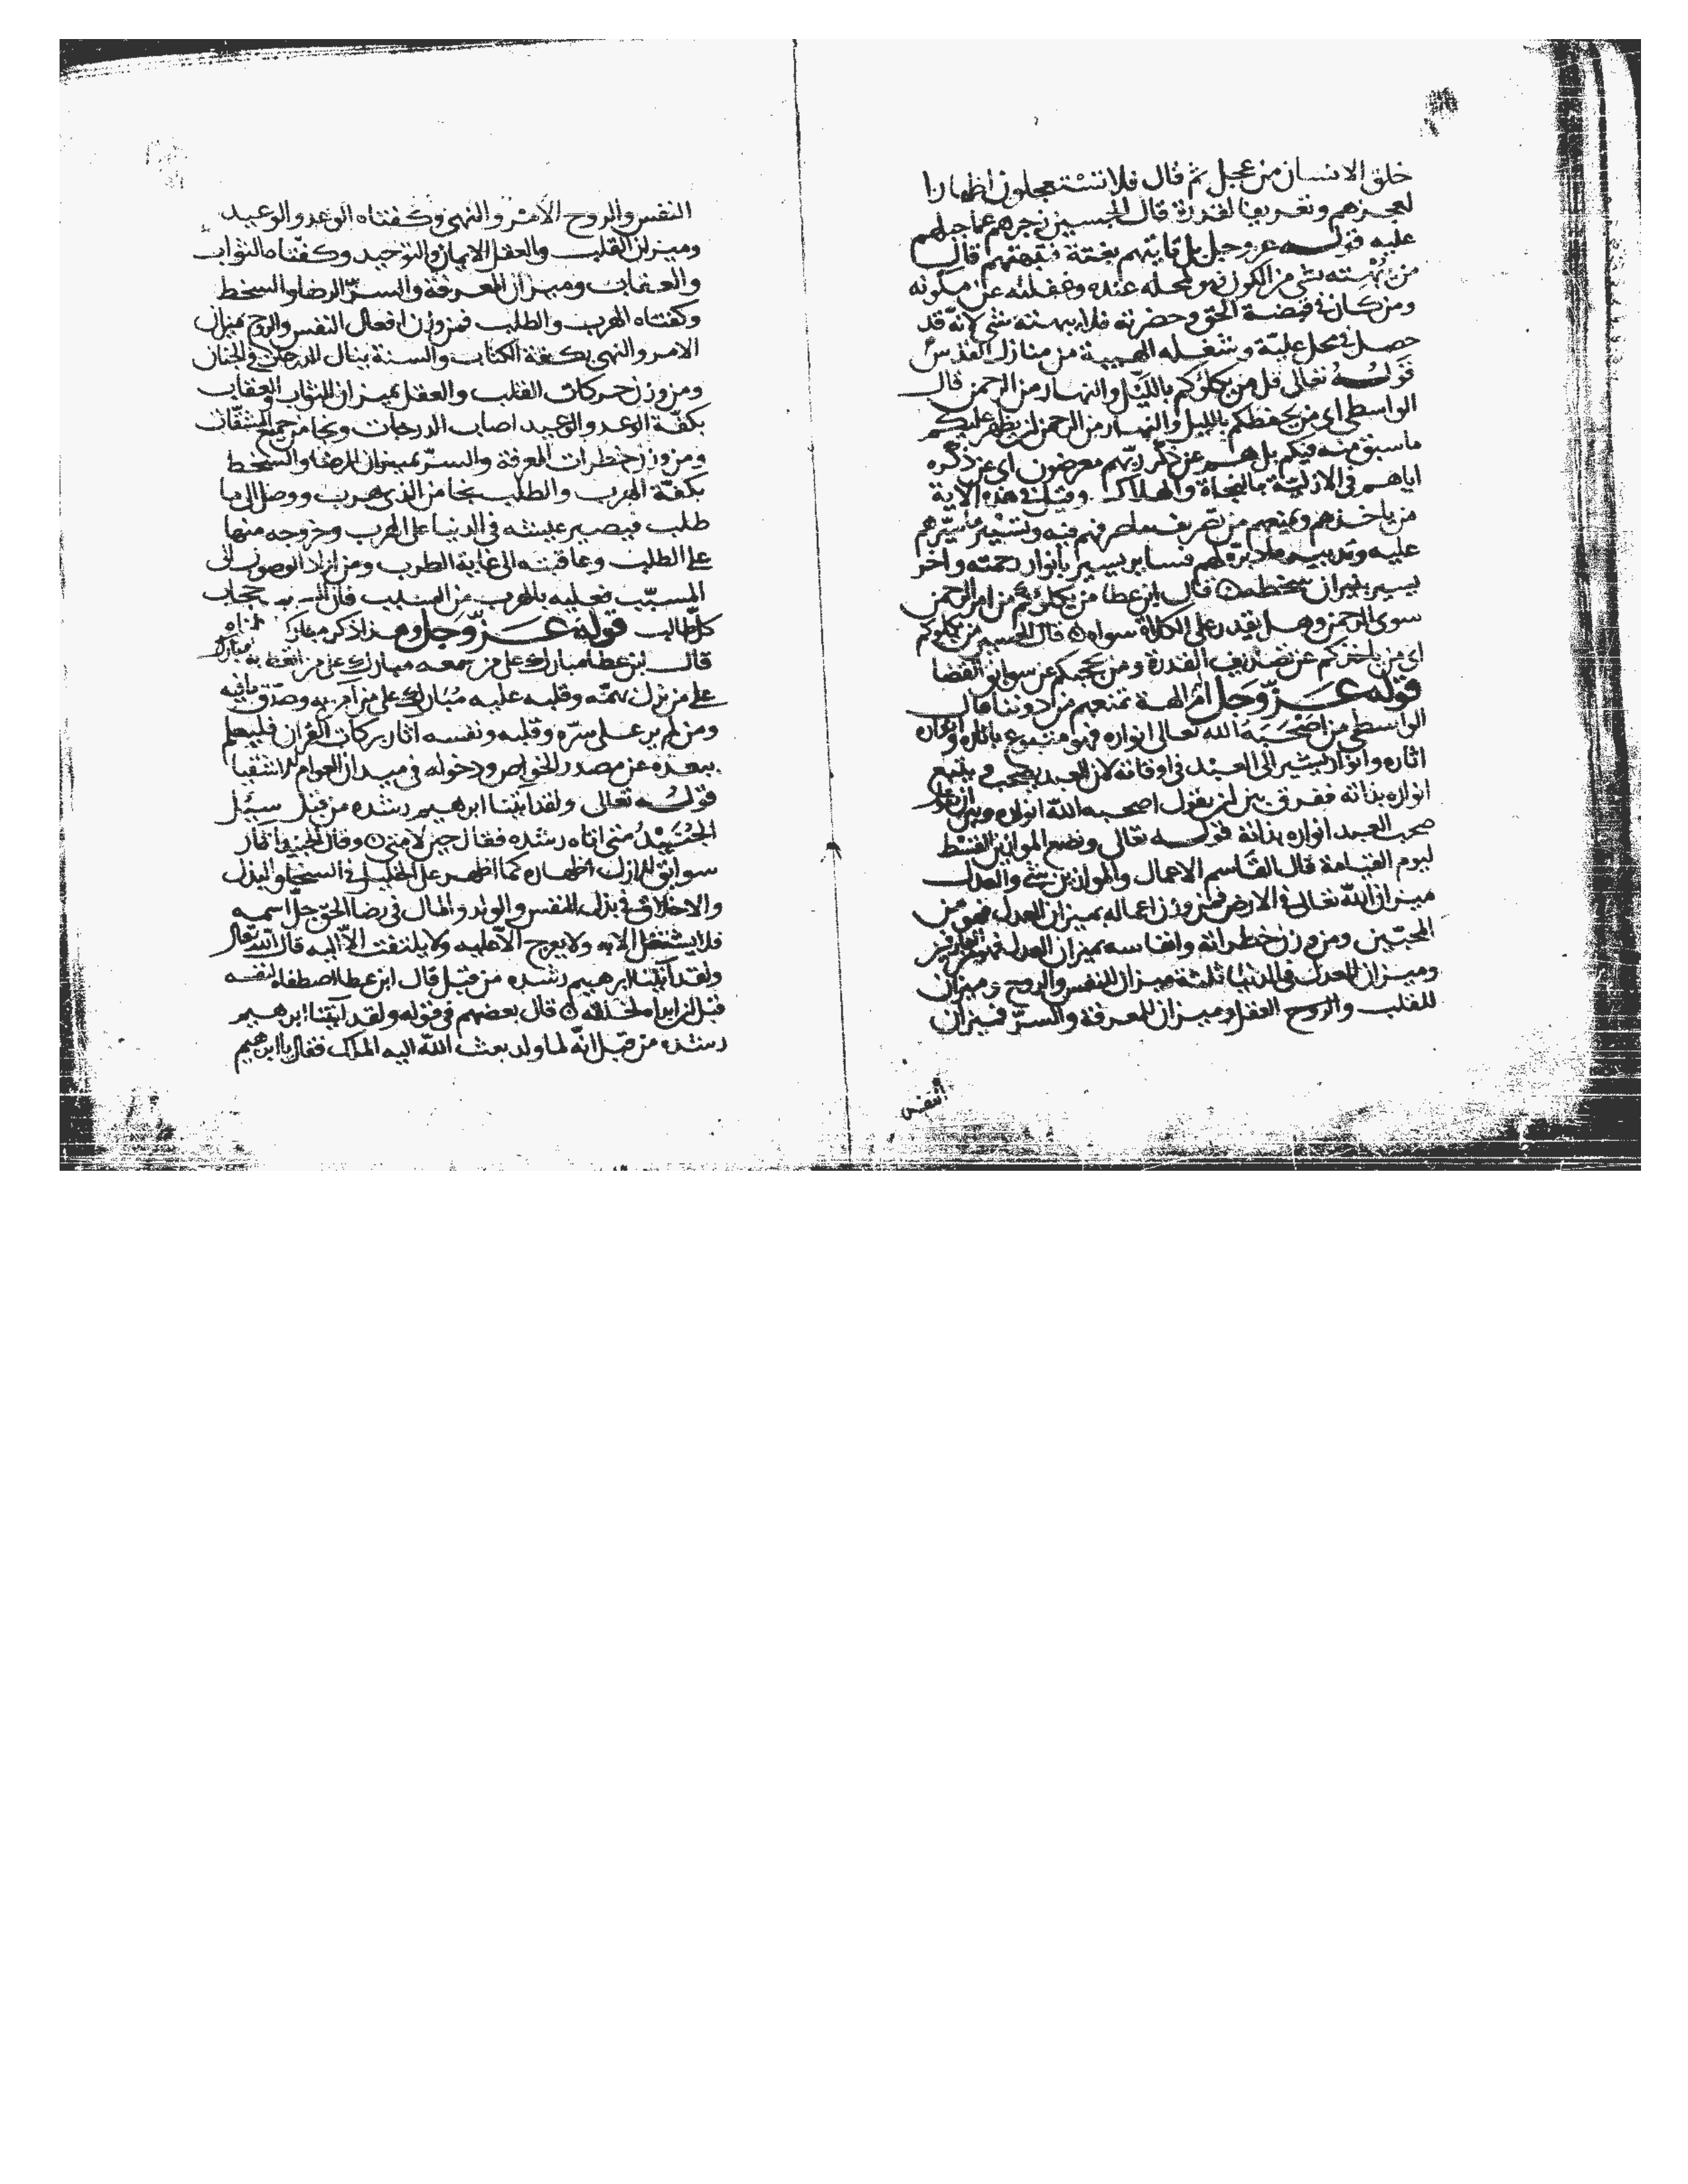 خلق الانسان من عجل ثم قال فلا تستعجلون اظهارا
لعجزهم وتعريفا لقدرة قال الحسين زجرهم عما جبلهم
عليه قوله عز وجل بل تاتيهم بغتة فتبهتهم قال
من بهته شي من الكون فهو لمحله عنده وغفلته عن مكونه
ومن كان في قبضة الحق وحضرته فلا يبهته شي لانه قد
حصل في محل هيبة وشغله الهيبة من منازل القدس
قوله تعالى قل من يكلؤكم بالليل والنهار من الرحمن قال
الواسطي اي من يحفظكم بالليل والنهار من الرحمن ان يظهر عليكم
ما سبق منه فيكم بل هم عن ذكر ربهم معرضون اي عن ذكره
اياهم في الازلية بالنجاة والهلاك وقيل في هذه الاية
من ياخذهم ويمنعهم من تصريف ما صرفهم فيه وتسيير ما سيرهم
عليه وتدبير ما دبر لهم فساير يسير بانوار رحمته واخر
يسير بنيران سخطه قال ابن عطا من يكلؤكم من امر الرحمن
سوى الرحمن وهل يقدر على الكلاة سواه قال الحسين من يكلوكم
اي من ياخذكم عن تصريف القدرة ومن يحجبكم عن سوابق القضا
قوله عز وجل ام لهم الهة تمنعهم من دوننا قال
الواسطي من اصحبه الله تعالى انواره فهو متبوع باثاره وانواره
اثاره وانواره تشير الى العبد في اوقاته لان العبد يصحب في يتبع
انواره بذاته ففرق بين ان يقول اصحبه الله انواره وبين ان يقول
صحب العبد انواره بذاته قوله تعالى ونضع الموازين القسط
ليوم القيامة قال القاسم الاعمال والموازين شتى والعدل
ميزان الله تعالى في الارض فمن وزن اعماله بميزان العدل فهو من
المحبين ومن وزن خطراته وانفاسه بميزان العدل فهو من العارفين
وميزان العدل في الدنيا ثلثة ميزان للنفس والروح وميزان
للقلب والروح العقل وميزان للمعرفة والسر فميزان
النفس
النفس والروح الامر والنهي وكفتاه الوعد والوعيد
وميزان القلب والعقل الايمان والتوحيد وكفتاه الثواب
والعقاب وميزان المعرفة والسر الرضا والسخط
وكفتاه الهرب والطلب فمن وزن افعال النفس والروح بميزان
الامر والنهي بكفة الكتاب والسنة ينال الدرجات في الجنان
ومن وزن حركات القلب والعقل بميزان الثواب والعقاب
بكفة الوعد والوعيد اصاب الدرجات ونجا من جميع المشقات
ومن وزن خطرات المعرفة والسر بميزان الرضا والسخط
بكفة الهرب والطلب نجا من الذي هرب ووصل الى ما
طلب فيصير عيشه في الدنيا على الهرب وخروجه منها
على الطلب وعاقبته الى غاية الطرب ومن اراد الوصول الى
المسبب فعليه بالهرب من السبب فان السبب حجاب
كل طالب قوله عز وجل وهذا ذكر مبارك انزلناه
قال ابن عطا مبارك على من جمعه مبارك على من اتعظ به مبارك
على من نزل سمته وقلبه عليه مبارك على من امن به وصدق بما فيه
ومن لم ير على سره وقلبه ونفسه اثار بركات القران فليعلم
ببعده عن مصدر الخواص ودخوله في ميدان العوام
قوله تعالى ولقد اتينا ابرهيم رشده من قبل سئل
الجنيد متى اتاه رشده فقال حين لا متى وقال الجنيد
سوابق الازل اظهاره كما اظهر على الخليل في السخا والبذل
والاخلاق في بذل النفس والولد والمال في رضا الحق جل اسمه
فلا يشتغل الا به ولا يعرج الا عليه ولا يلتفت الا اليه قال الله تعالى
ولقد اتينا ابرهيم رشده من قبل قال ابن عطا اصطفاه لنفسه
قبل ان ابداه لخلقه قال بعضهم في قوله ولقد اتينا ابرهيم
رشده من قبل انه لما ولد بعث الله اليه الملك فقال يا ابرهيم